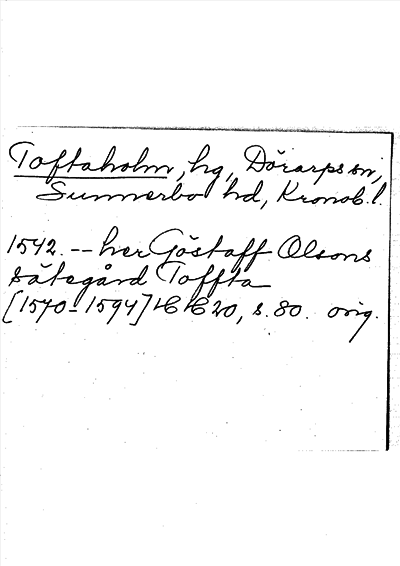 Toftaholm, hg, Dörarps sn,
Sunnerbo hd, Kronob. l.
1542. -- her Göstaff Olsons
sätegård Toffta
[1570-1594] 20, s. 80. orig.